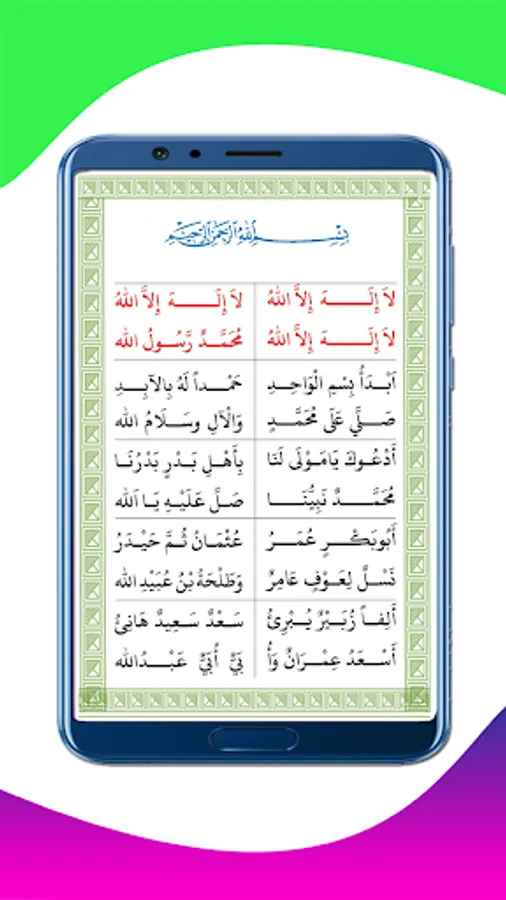 بِسْمِ اللهِ الرَّحْمٰنِ الرَّحِيْمِ
لاَ إِلَـــهَ إِلاَّ اللهُ لاَ إِلَـــهَ إِلاَّ اللهُ
لاَ إِلَـــهَ إِلاَّ اللهُ مُحَمَّدٌ رَّسُولُ الله
اَبْدَأُ بِسْمِ الْوَاحِدِ حَمْداً لَهُ بِالآبِدِ
صَلَّي عَلَى مُحَمَّدٍ وَالْآلِ وسَلَامُ الله
أَدْعُوكَ يَامَوْلَى لَنَا بِأَهْلِ بَدْرٍ بَدْرُنَا
مُحَمَّدٌ نَبِيُّنَا صَلَّ عَلَيْهِ يَا اَلله
أَبُوبَكْرٍ عُمَرُ عُثْمَانُ ثُمَّ حَيْدَرُ
نَسْلٌ لِعَوْفٍ عَامِرٌ وَطَلْحَةُ بْنُ عُبَيْدِ الله
أَلِفاً زُبَيْرٌ يُبْرِئُ سَعْدٌ سَعِيدٌ هَانِئُ
أَسْعَدُ عِمْرَانٌ وَأُ بَيٌّ أُبَيٌّ عَبْدُالله